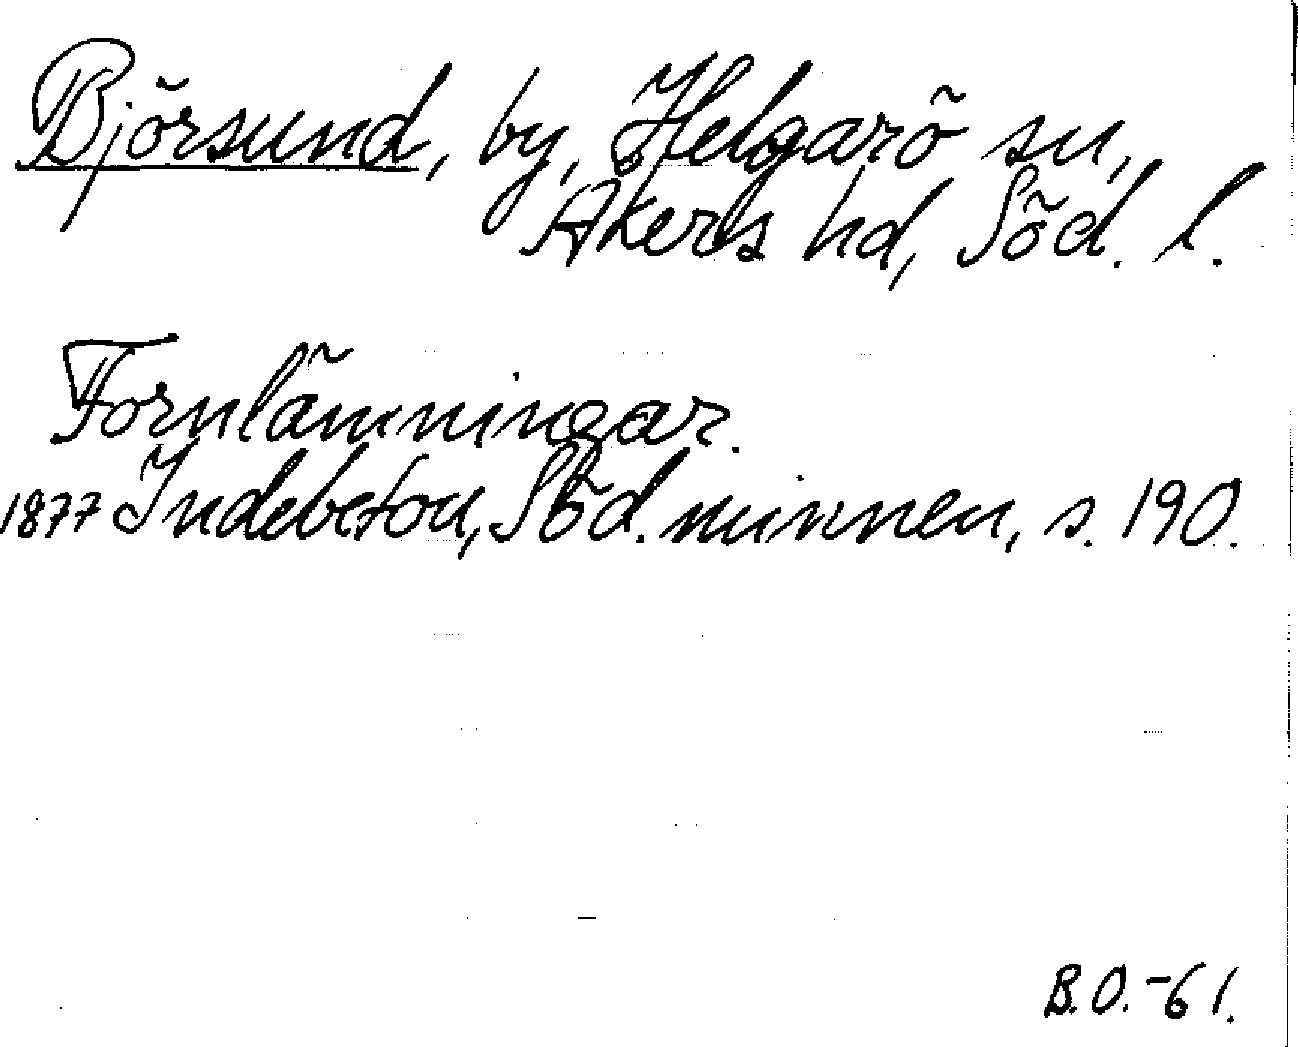 Björsund, by, Helgarö sn,
Åkers hd, Söd. l.
Fornlämningar.
1877 Indebetou, Söd. minnen, s. 190.
B.O. -61.